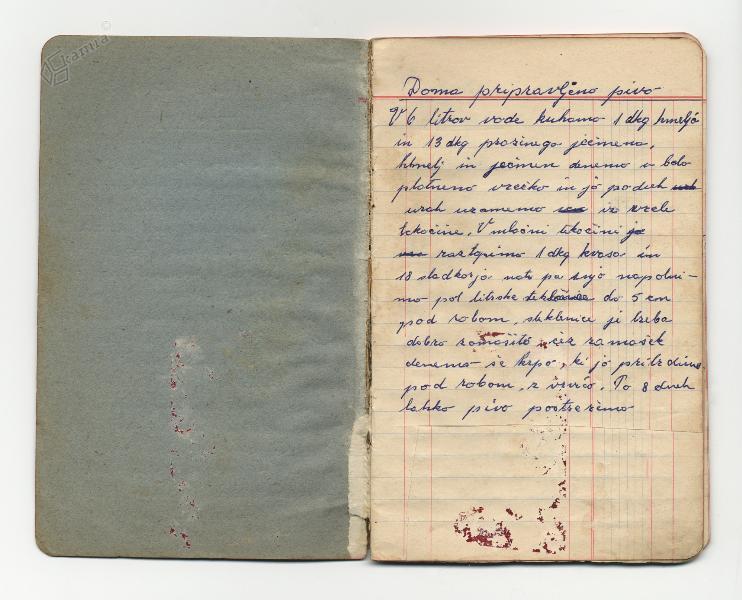 kamra
Doma pripravljeno pivo
V 6 litrov vode kuhamo 1 dkg hmelja
in 13 dkg praženega ječmena,
hmelj in ječmen denemo v belo
platneno vrečko in jo po dveh
urah vzamemo iz vrele
tekočine. V mlačni tekočini
raztopimo 1 dkg kvasa in
18 sladkorja nato pa z njo napolni-
mo pol litrske steklenice do 5 cm
pod robom, steklenice je treba
dobro zamašiti i čez zamašek
denemo še krpo, ki jo pritrdimo
pod robom, z vrvico. Po 8 dneh
lahko pivo postrežemo